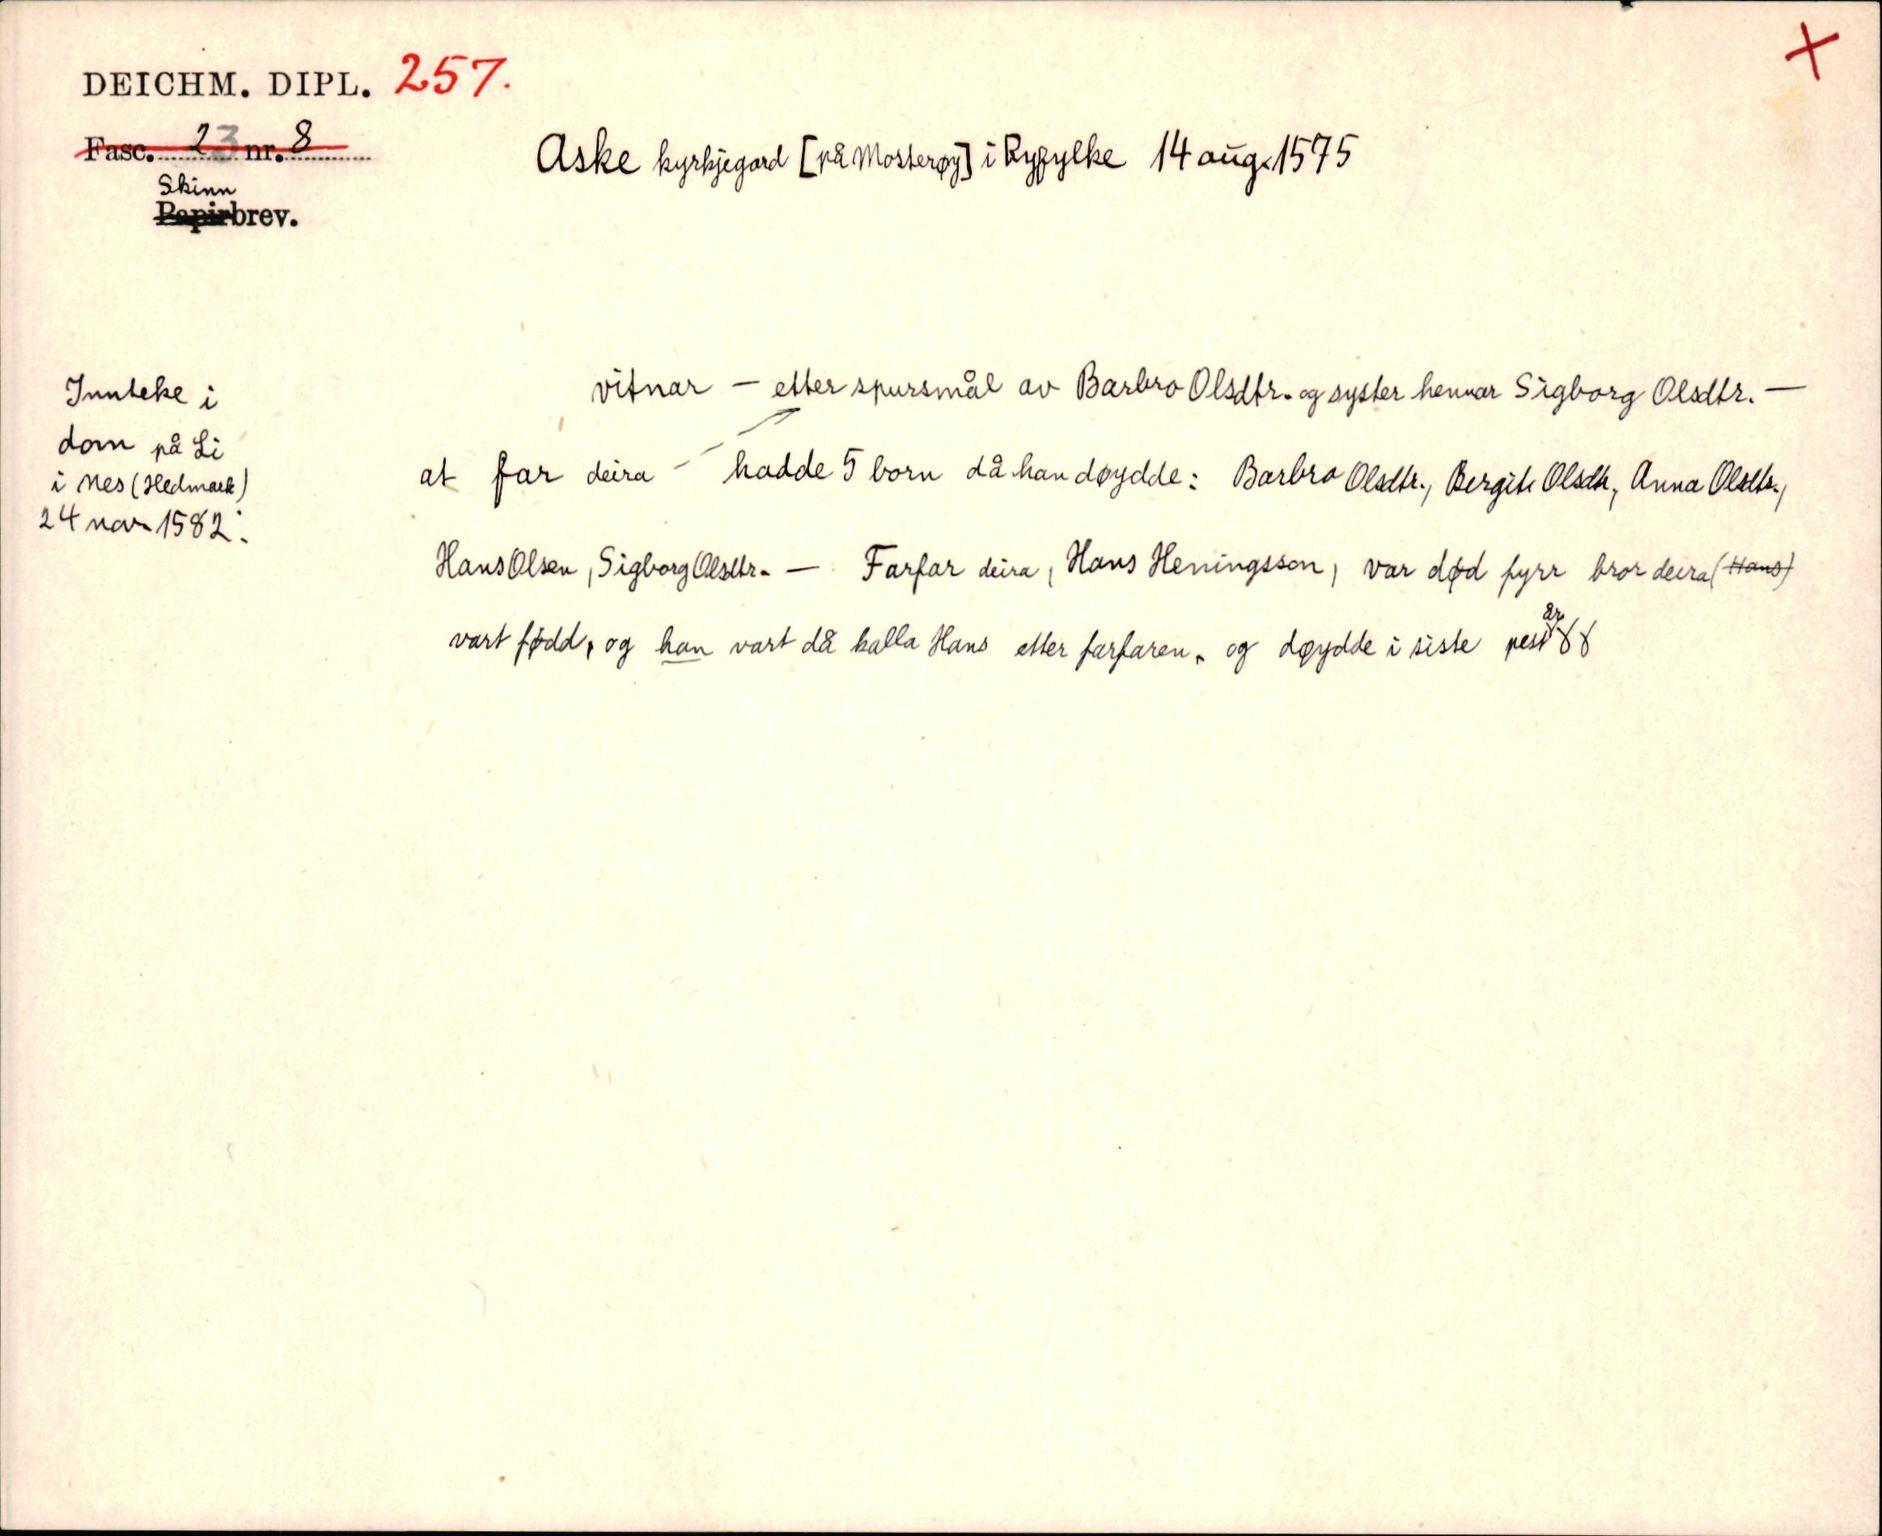 DEICHM. DIPL. 257.
Fasc. 23 nr. 8
Skinn
Papirbrev.
Aske kyrkjegard [på Mosterøy] i Ryfylke 14 aug. 1575
Innteke i
dom på Li
i Nes (Hedmark)
24 nov. 1582:
vitnar – etter spursmål av Barbro Olsdtr. og syster hennar Sigborg Olsdtr. –
at far deira – hadde 5 born då han døydde: Barbro Olsdtr., Bergite Olsdtr, Anna Olsdtr.,
Hans Olsen, Sigborg Olsdtr. – Farfar deira, Hans Heningsson, var død fyrr bror deira (Hans)
vart fødd, og han vart då kalla Hans etter farfaren. og døydde i siste pest
år